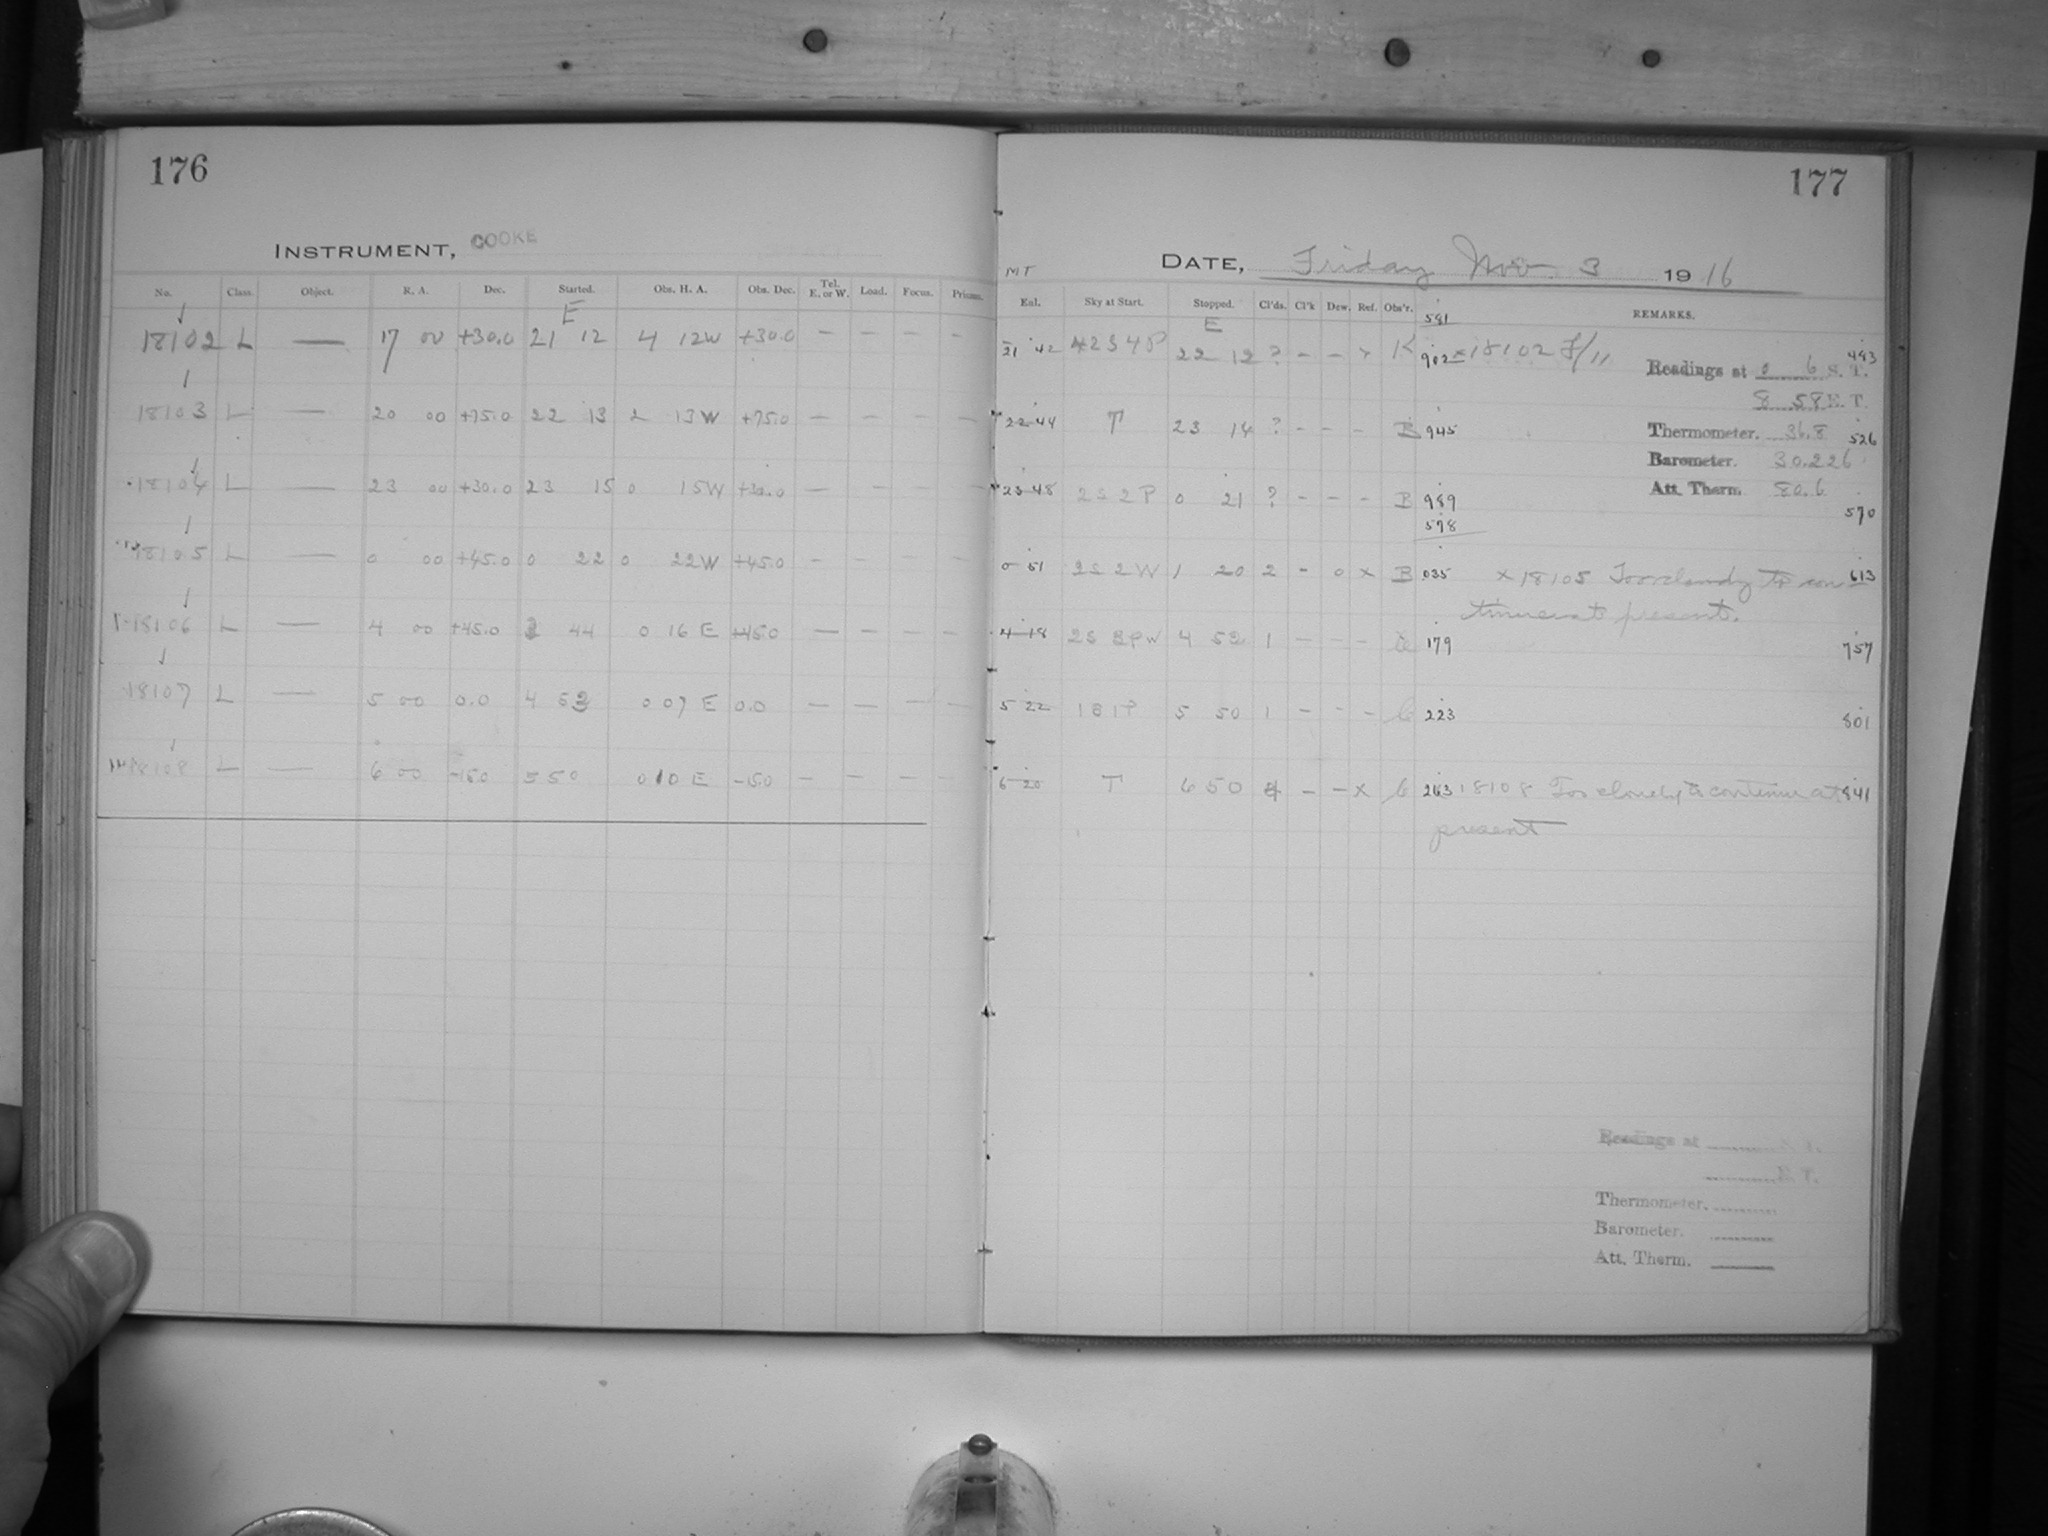 176
INSTRUMENT, COOKE
No. Class. Object. R. A. Dec. Started. Obs. H. A. Obs. Dec. Tel. E. or W. Load. Focus. Prisms.
E
18102 L — 17 00 +30.0 21 12 4 12W +30.0 — — — —
18103 L — 20 00 +75.0 22 13 2 13W +75.0 — — — —
18104 L — 23 00 +30.0 23 15 0 15W +30.0 — — — —
18105 L — 0 00 +45.0 0 22 0 22W +45.0 — — —
18106 L — 4 00 +45.0 3 44 0 16 E +45.0 — — — —
18107 L — 5 00 0.0 4 53 0 07 E 0.0 — — — —
18108 L — 6 00 -15.0 5 50 0 10 E -15.0 — — — —
177
DATE, Friday Nov 3 1916
MT
Exl. Sky at Start. Stopped. Cl'ds. Cl'k Dew. Ref. Obs'r. REMARKS.
581
E
21 42 4 2 S 4 P 22 12 ? – – × K 902 × 18102 F/11 483
Readings at 0 6 S. T.
8 58 E. T.
22 44 T 23 14 ? – – – B 945 Thermometer. 36.8 526
Barometer. 30.226
23 48 2 S 2 P 0 21 ? – – – B 989 Att. Therm. 80.6 570
578
0 51 2 S 2 W 1 20 2 – 0 × B 035 × 18105 Too cloudy to con- 613
tinue at present.
4 18 4 52 1 – – – 179 757
5 22 1 S 1 P 5 50 1 – – – C 223 801
6 20 T 6 50 4 – – × C 263 18108 Too cloudy to continue at 841
present
Readings at
S. T.
Thermometer.
Barometer.
Att. Therm.